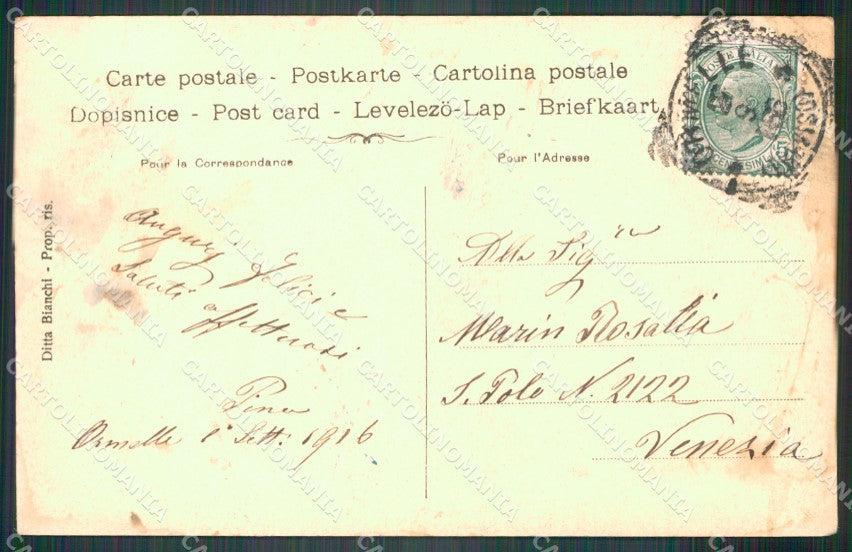 Carte postale - Postkarte - Cartolina postale
Dopisnice - Post card - Levelezö-Lap - Briefkaart
Pour la Correspondance
Pour l'Adresse
Ditta Bianchi - Propr. ris.
Augury felicie
Saluti affettuosi
Pina
Ormelle 1° Sett: 1916
Alla Sig.ra
Marin Rosalia
S. Polo N. 2122
Venezia
POSTE ITALIANE
ORMELLE
CARTOLINOMANIA